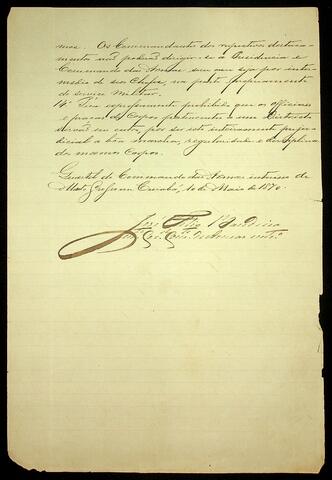 mos. Os Commandantes dos respectivos destaca-
mentos não poderão dirigir-se á Presidencia e
Commando das Armas sem ser por inter-
medio de seos Chefes, na parte propriamente
do serviço Militar.
14ª Fica expressamente prohibido que os officiaes
e praças do Corpo pertencente a um Districto
sirvão em outro, por ser isto inteiramente preju-
dicial a bôa marcha, regularidade e disciplina
do mesmo Corpo.
Quartel do Commando das Armas interino de
Matto Grosso em Cuiabá, 10 de Maio de 1870.
José
Armas intº